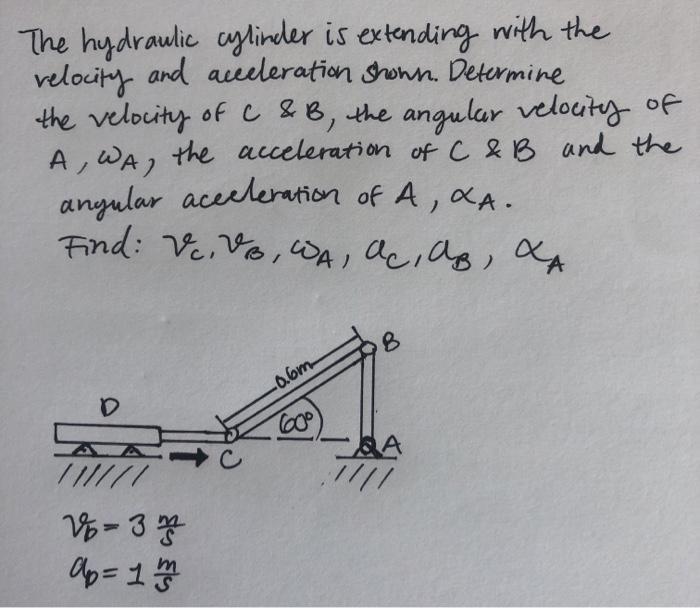 The hydraulic cylinder is extending with the
velocity and acceleration shown. Determine
the velocity of C & B, the angular velocity of
A, ωA, the acceleration of C & B and the
angular acceleration of A, αA.
Find: vC, vB, ωA, aC, aB, αA
B
0.6m
D
60°
A
C
vD = 3 m/s
aD = 1 m/s